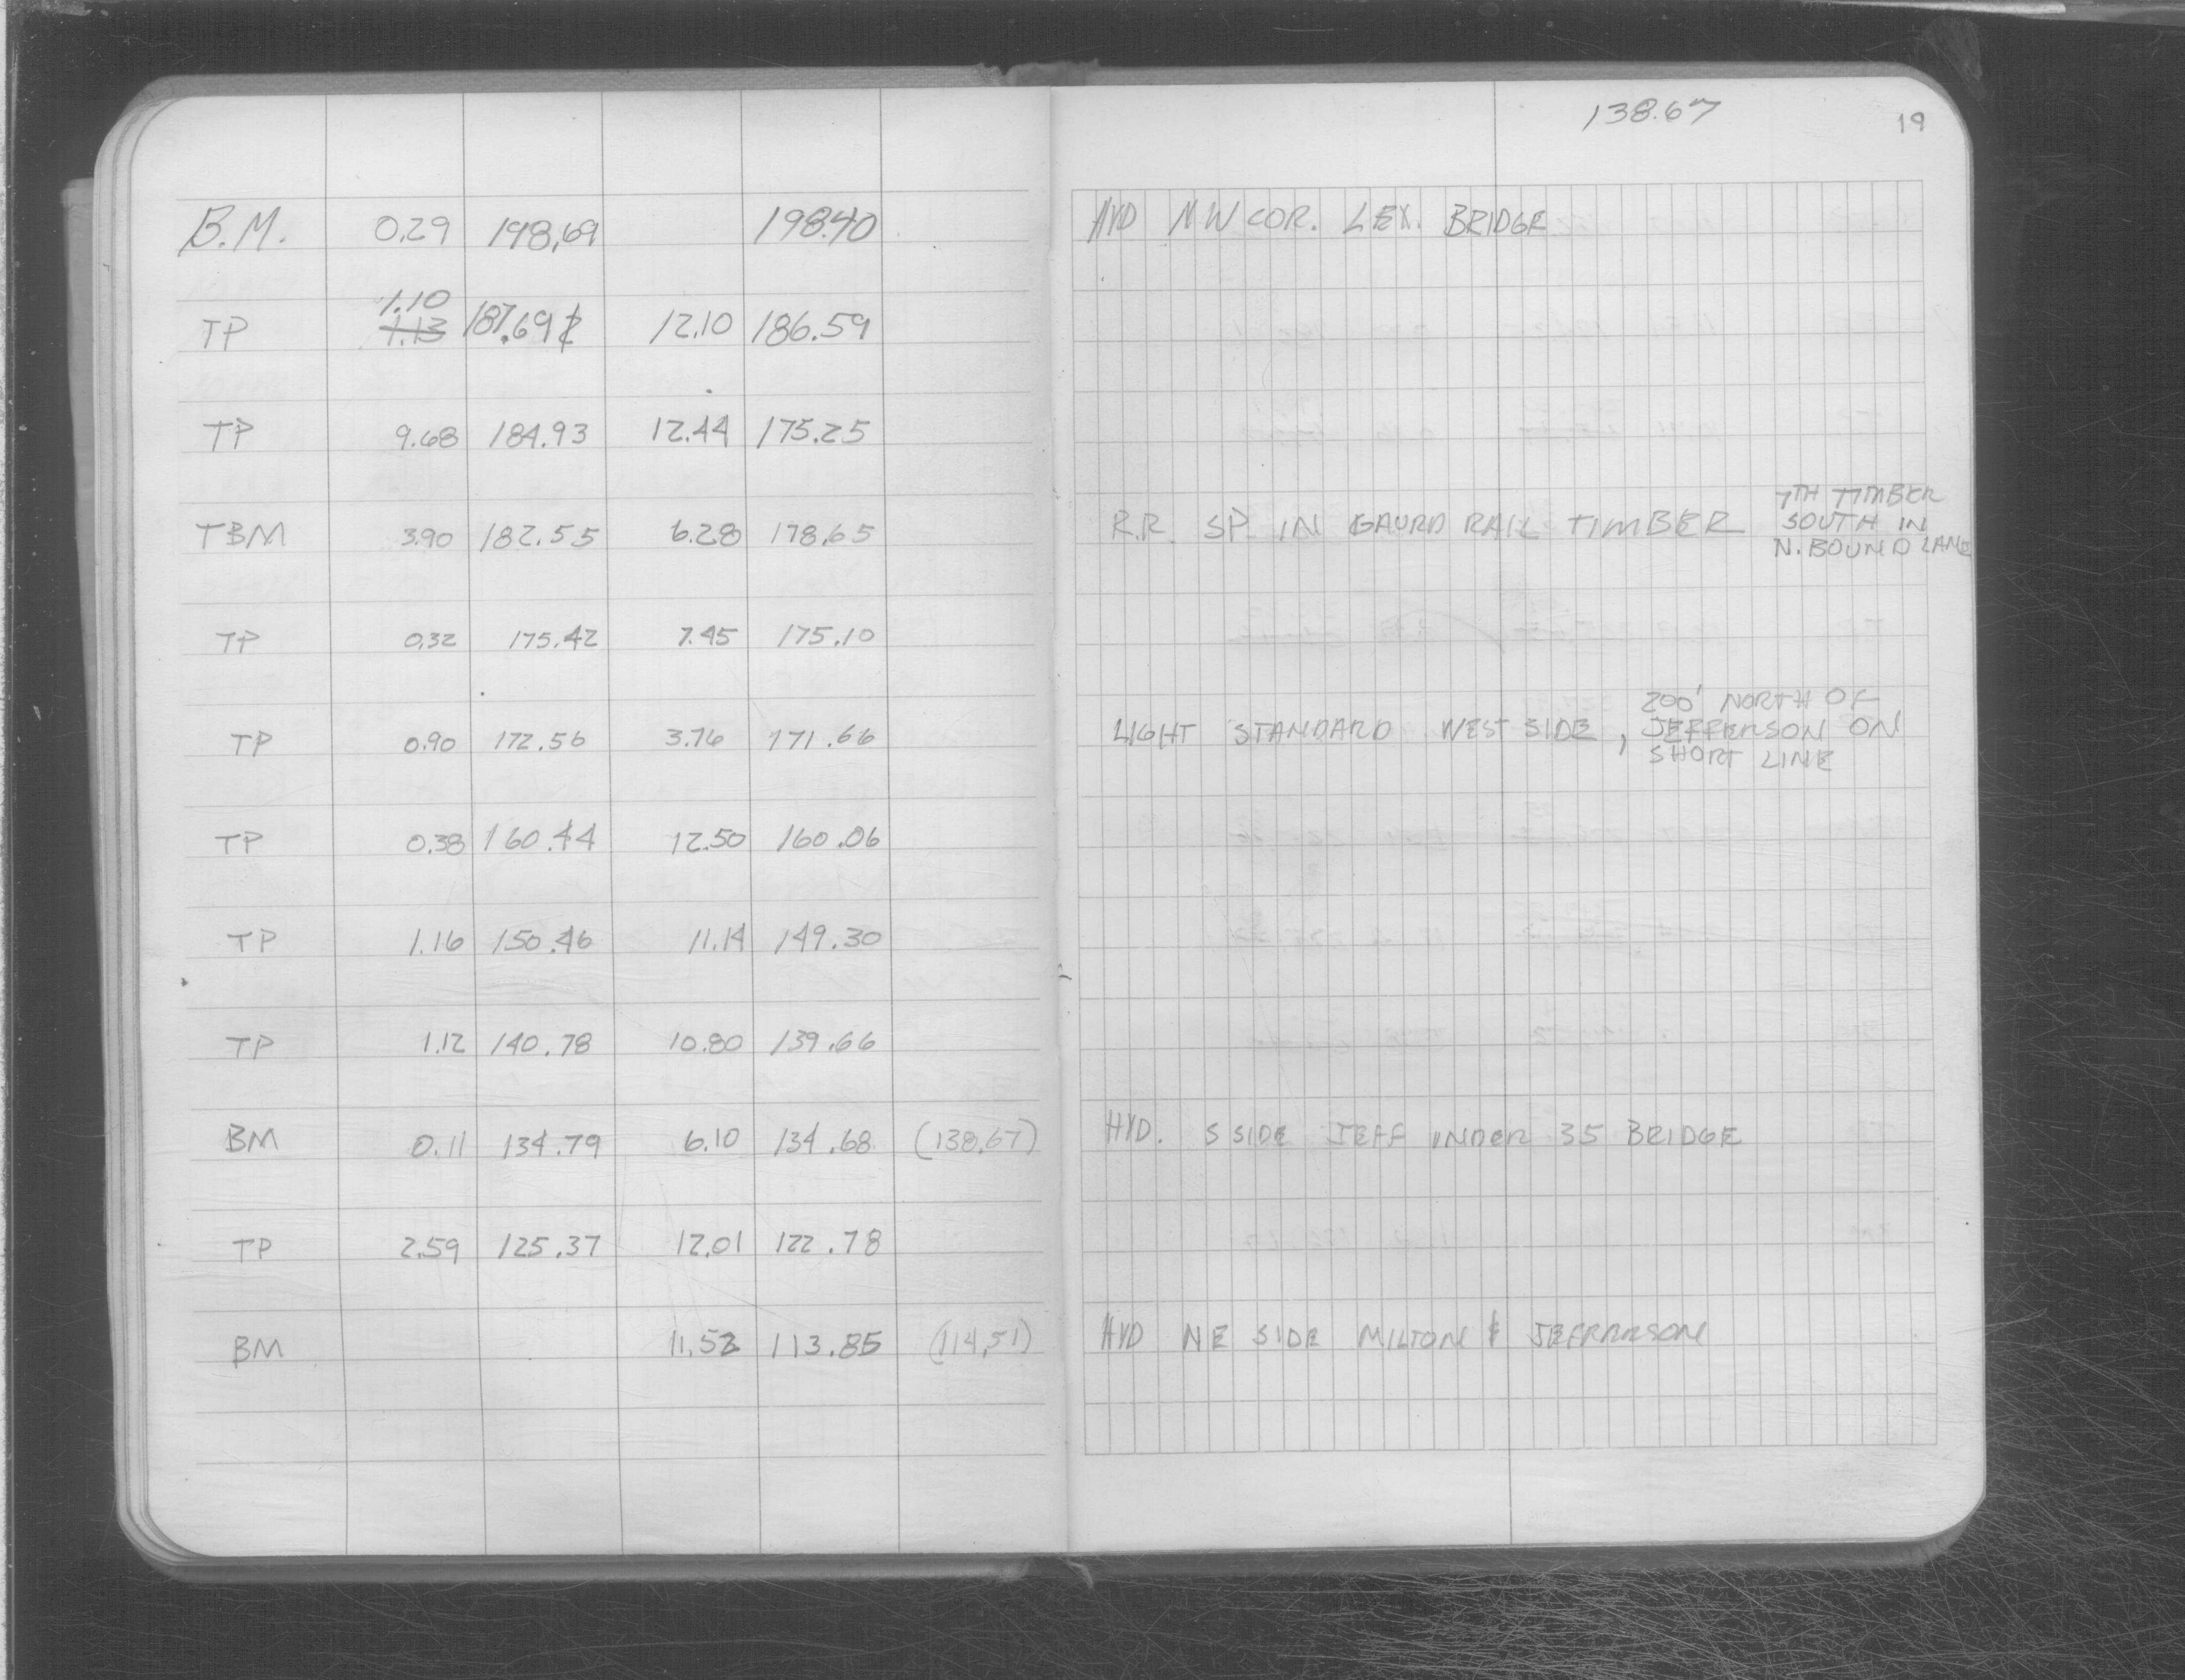 138.67
19
B.M. 0.29 198.69 198.40 HYD NW COR. LEX. BRIDGE
1.10
TP 1.13 187.69 12.10 186.59
TP 9.68 184.93 12.44 175.25
TBM 3.90 182.55 6.28 178.65 R.R. SP. IN GAURD RAIL TIMBER 7TH TIMBER
SOUTH IN
N. BOUND LANE
TP 0.32 175.42 7.45 175.10
TP 0.90 172.56 3.76 171.66 LIGHT STANDARD WEST SIDE, 200' NORTH OF
JEFFERSON ON
SHORT LINE
TP 0.38 160.44 12.50 160.06
TP 1.16 150.46 11.14 149.30
TP 1.12 140.78 10.80 139.66
BM 0.11 134.79 6.10 134.68 (138.67) HYD. S SIDE JEFF UNDER 35 BRIDGE
TP 2.59 125.37 12.01 122.78
BM 11.52 113.85 (114.51) HYD NE SIDE MILTON & JEFFERSON